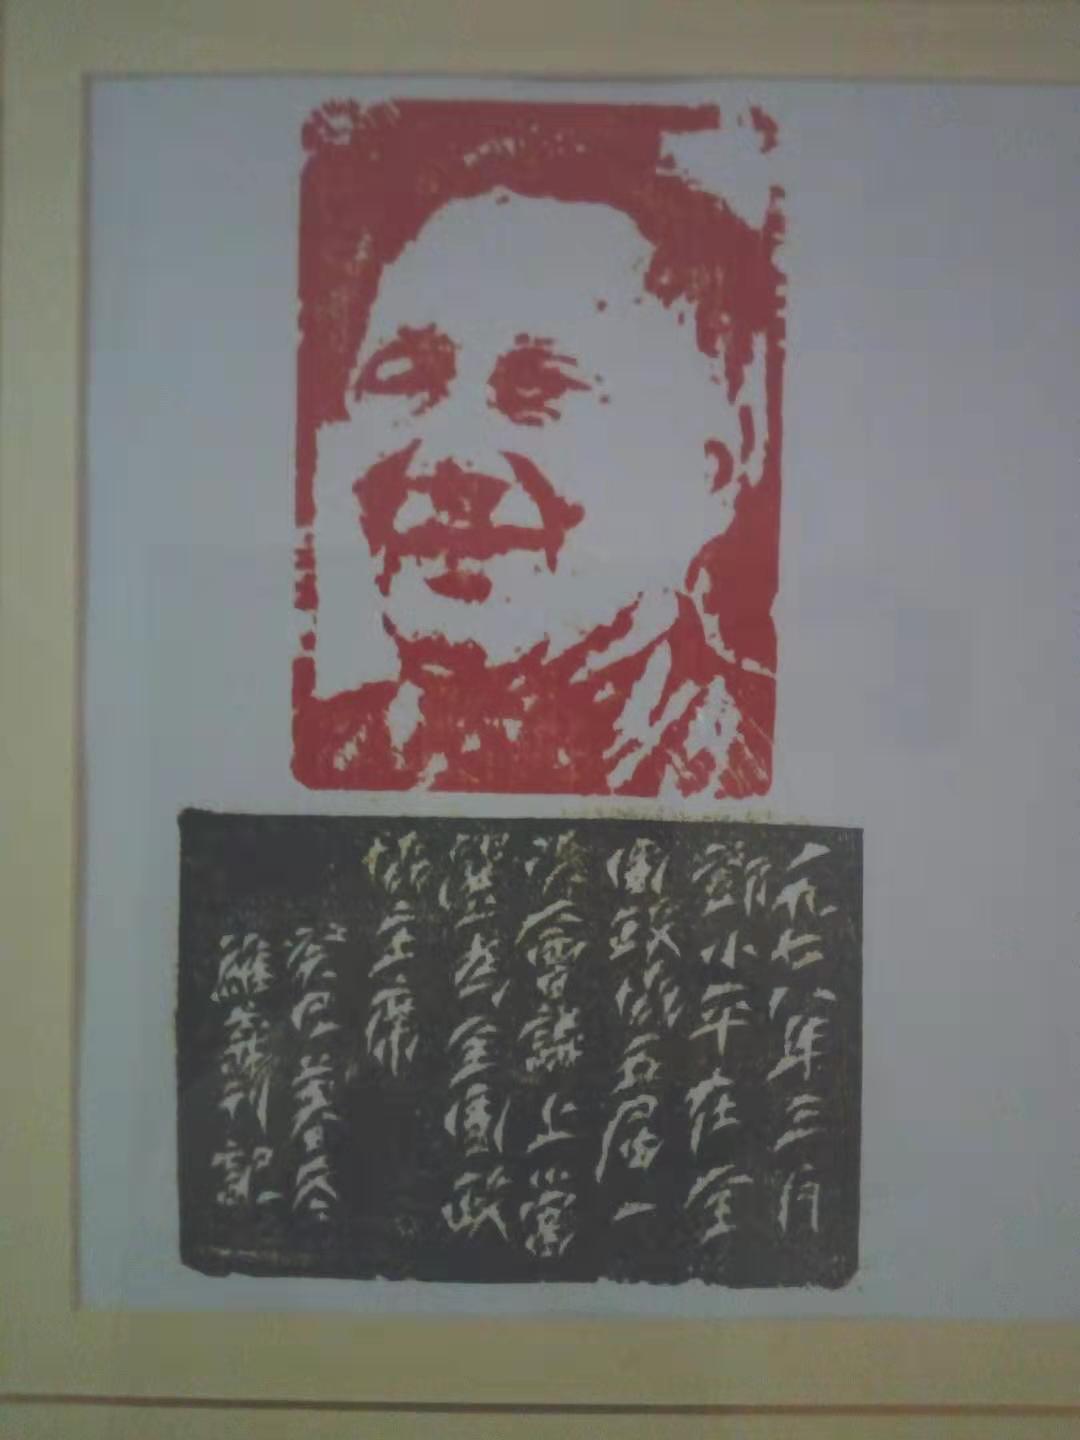 一九七八年三月
鄧小平在全
國政協五屆一
次會議上當
選為全國政
協主席
癸巳冬
刊記